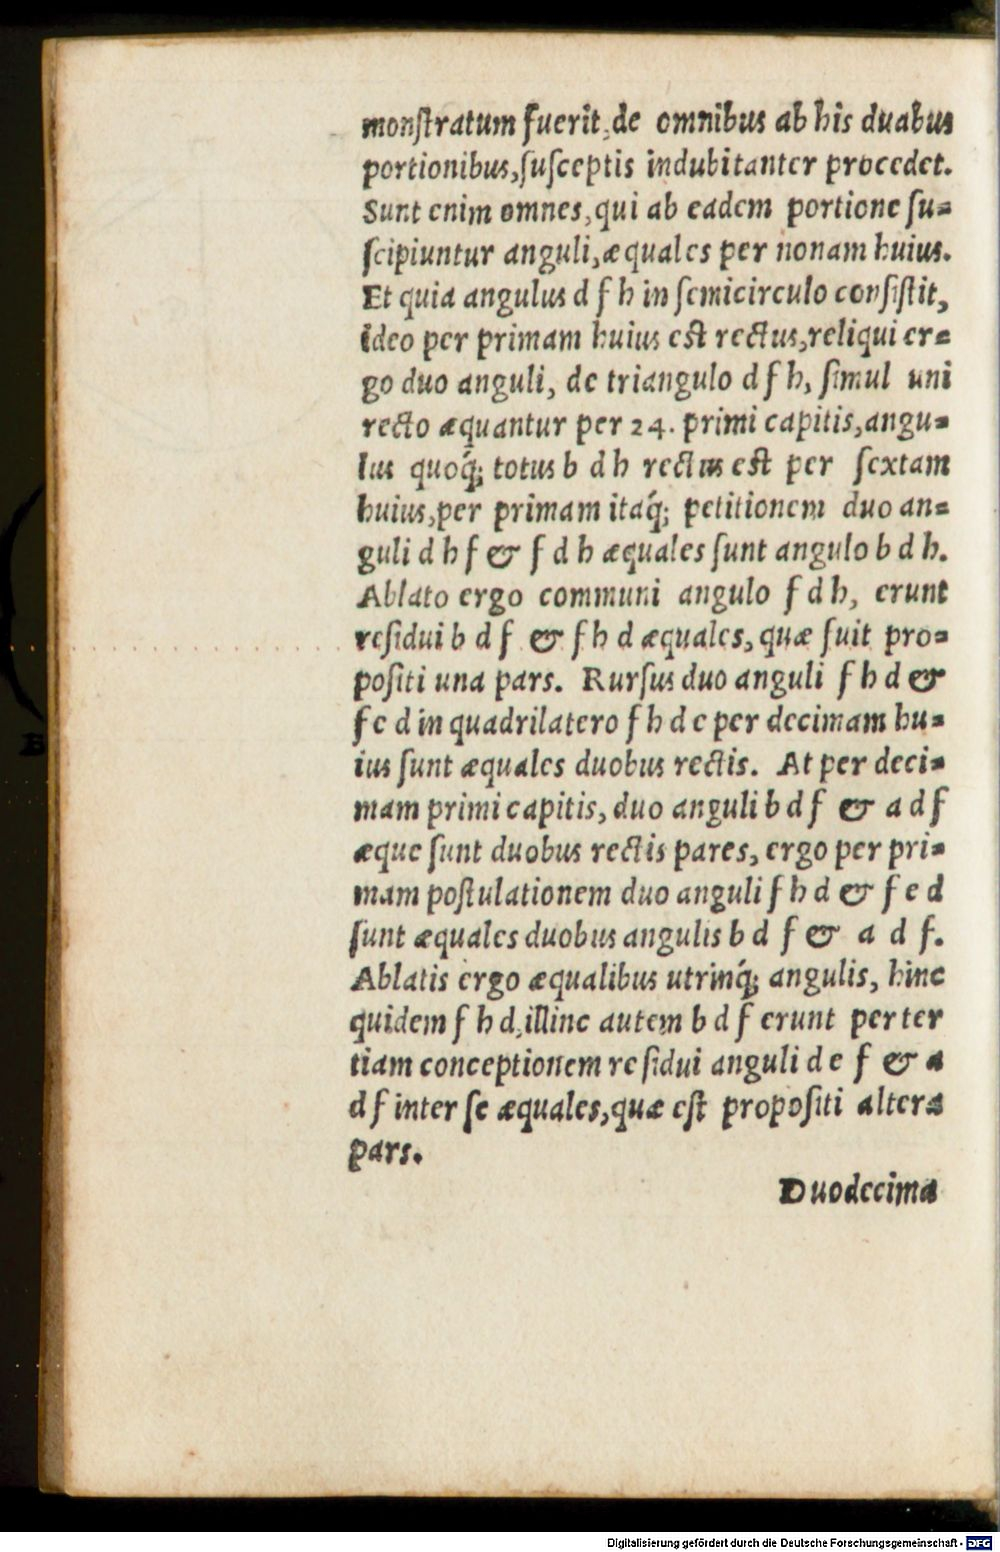 monſtratum fuerit, de omnibus ab his duabus
portionibus, ſuſceptis indubitanter procedet.
Sunt enim omnes, qui ab eadem portione ſu-
ſcipiuntur anguli, æquales per nonam huius.
Et quia angulus d f h in ſemicirculo conſiſtit,
ideo per primam huius eſt rectus, reliqui er-
go duo anguli, de triangulo d f h, ſimul uni
recto æquantur per 24. primi capitis, angu-
lus quoq́; totus b d h rectus eſt per ſextam
huius, per primam itaq́; petitionem duo an-
guli d h f & f d h æquales ſunt angulo b d h.
Ablato ergo communi angulo f d h, erunt
reſidui b d f & f h d æquales, quæ fuit pro-
poſiti una pars. Rurſus duo anguli f h d &
f e d in quadrilatero f h d e per decimam hu-
ius ſunt æquales duobus rectis. At per deci-
mam primi capitis, duo anguli b d f & a d f
æque ſunt duobus rectis pares, ergo per pri-
mam poſtulationem duo anguli f h d & f e d
ſunt æquales duobus angulis b d f & a d f.
Ablatis ergo æqualibus utrinq́; angulis, hinc
quidem f h d, illinc autem b d f erunt per ter
tiam conceptionem reſidui anguli d e f & a
d f inter ſe æquales, quæ eſt propoſiti altera
pars.
Duodecima
B
Digitalisierung gefördert durch die Deutsche Forschungsgemeinschaft - DFG